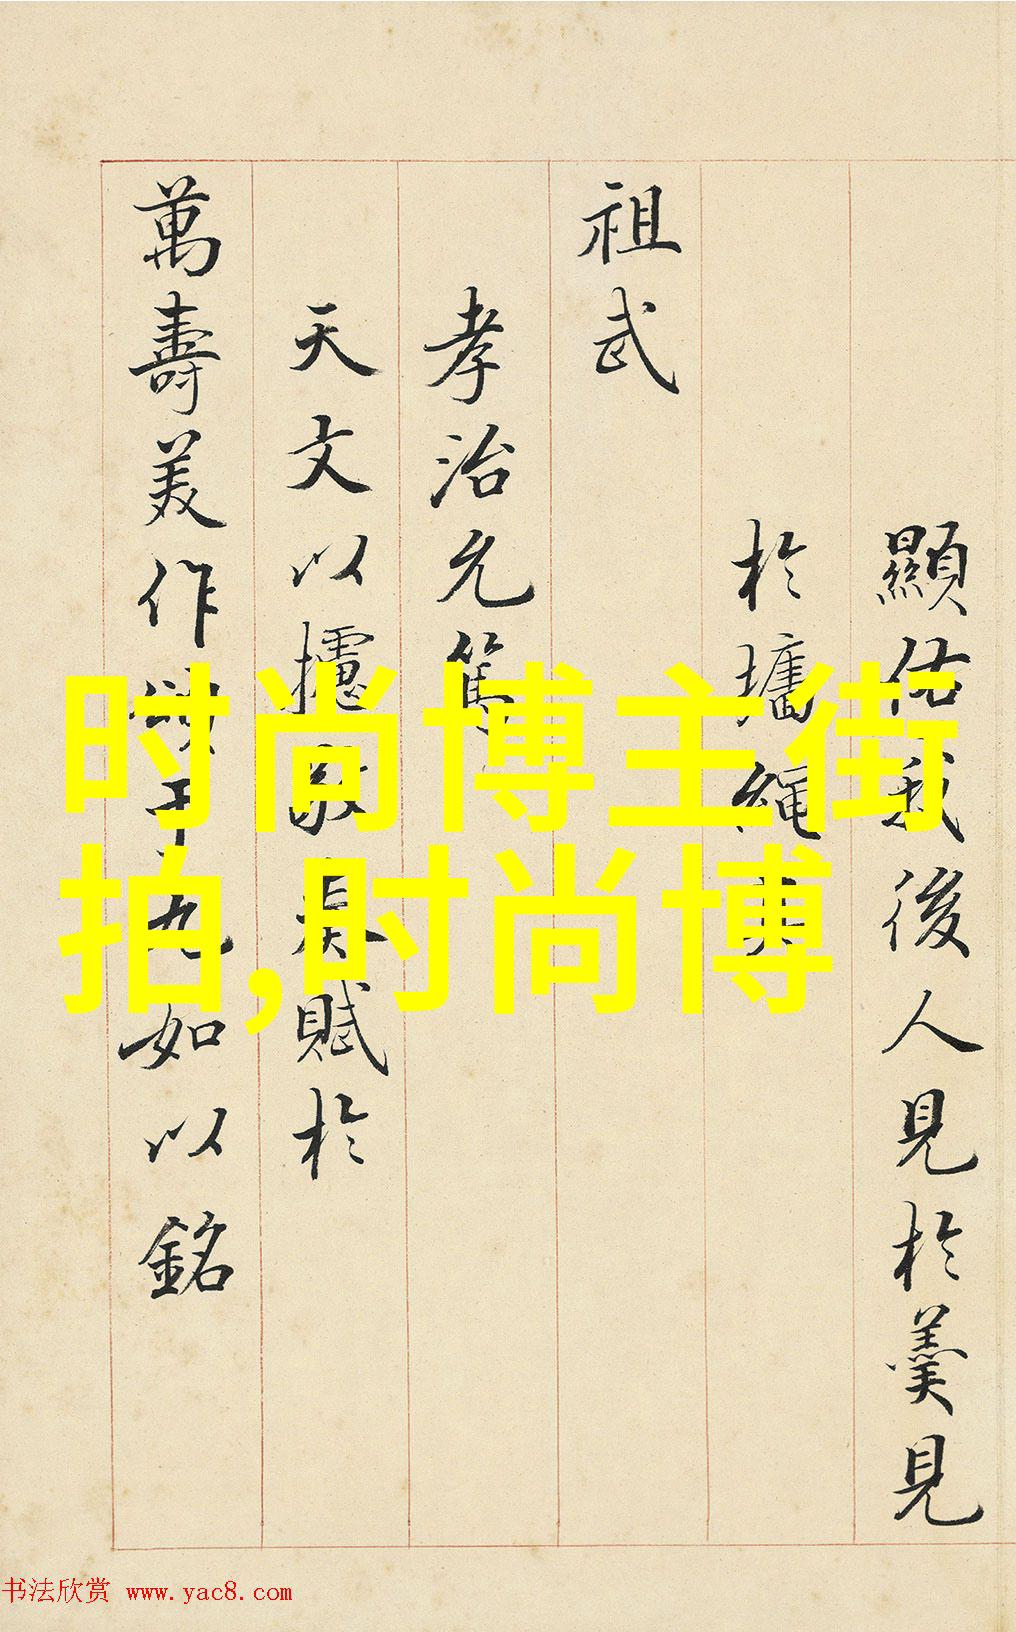 顯佑我後人見於羹見
於墻繩其
祖武
孝治允篤
天文以攄賦於
萬壽美作九如以銘
时尚博主街
拍,时尚博
书法欣赏 www.yac8.com